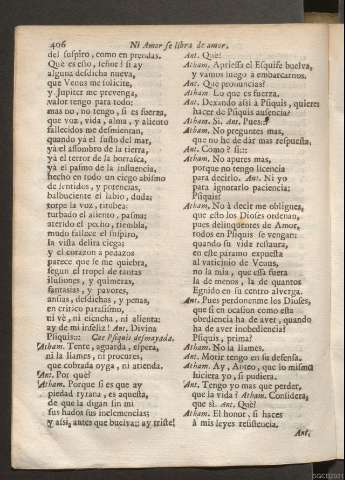 406 Ni Amor se libra de amor.
del suspiro, como en prendas.
Què es esto, señor? si ay
alguna desdicha nueva,
que Venus me solicite,
y Jupiter me prevenga,
valor tengo para todo:
mas no, no tengo, si es fuerza,
que voz, vida, alma, y aliento
fallecidos me desmientan,
quando yà al susto del mar,
yà al assombro de la tierra,
yà al terror de la borrasca,
yà al pasmo de la influencia,
hecho en todo un ciego abismo
de sentidos, y potencias,
balbuciente el labio, duda;
torpe la voz, titubea;
turbado el aliento, pasma;
aterido el pecho, tiembla,
mudo fallece el suspiro,
la vista delira ciega;
y el corazon à pedazos
parece que se me quiebra,
segun el tropel de tantas
ilusiones, y quimeras,
fantasias, y pavores,
ansias, desdichas, y penas,
en critico parasismo,
ni vè, ni escucha, ni alienta:
ay de mi infeliz! Ant. Divina
Psiquis::: Cae Psiquis desmayada.
Atham. Tente, aguarda, espera,
ni la llames, ni procures,
que cobrada oyga, ni atienda.
Ant. Por què?
Atham. Porque si es que ay
piedad tyrana, es aquesta,
de que la digan sin mi
sus hados sus inclemencias;
y assi, antes que buelva:: ay triste!
Ant. Què?
Atham. Apriessa el Esquife buelva,
y vamos luego à embarcarnos.
Ant. Què pronuncias?
Atham. Lo que es fuerza.
Ant. Dexando assi à Psiquis, quieres
hacer de Psiquis ausencia?
Atham. Si. Ant. Pues::
Atham. No preguntes mas,
que no he de dar mas respuesta.
Ant. Como? si::
Atham. No apures mas,
porque no tengo licencia
para decirlo. Ant. Ni yo
para ignorarlo paciencia:
Psiquis!
Atham. No à decir me obligues,
que esto los Dioses ordenan,
pues delinquentes de Amor,
todos en Psiquis se vengan:
quando su vida restaura,
en este paramo expuesta
al vaticinio de Venus,
no la mia, que essa fuera
la de menos, la de quantos
Egnido en su centro alverga.
Ant. Pues perdonenme los Dioses,
que si en ocasion como esta
obediencia ha de aver, quando
ha de aver inobediencia?
Psiquis, prima?
Atham. No la llames.
Ant. Morir tengo en su defensa.
Atham. Ay, Anteo, que lo mismo
hiciera yo, si pudiera.
Ant. Tengo yo mas que perder,
que la vida? Atham. Considera,
que sì. Ant. Què?
Atham. El honor, si haces
à mis leyes resistencia.
Ant.